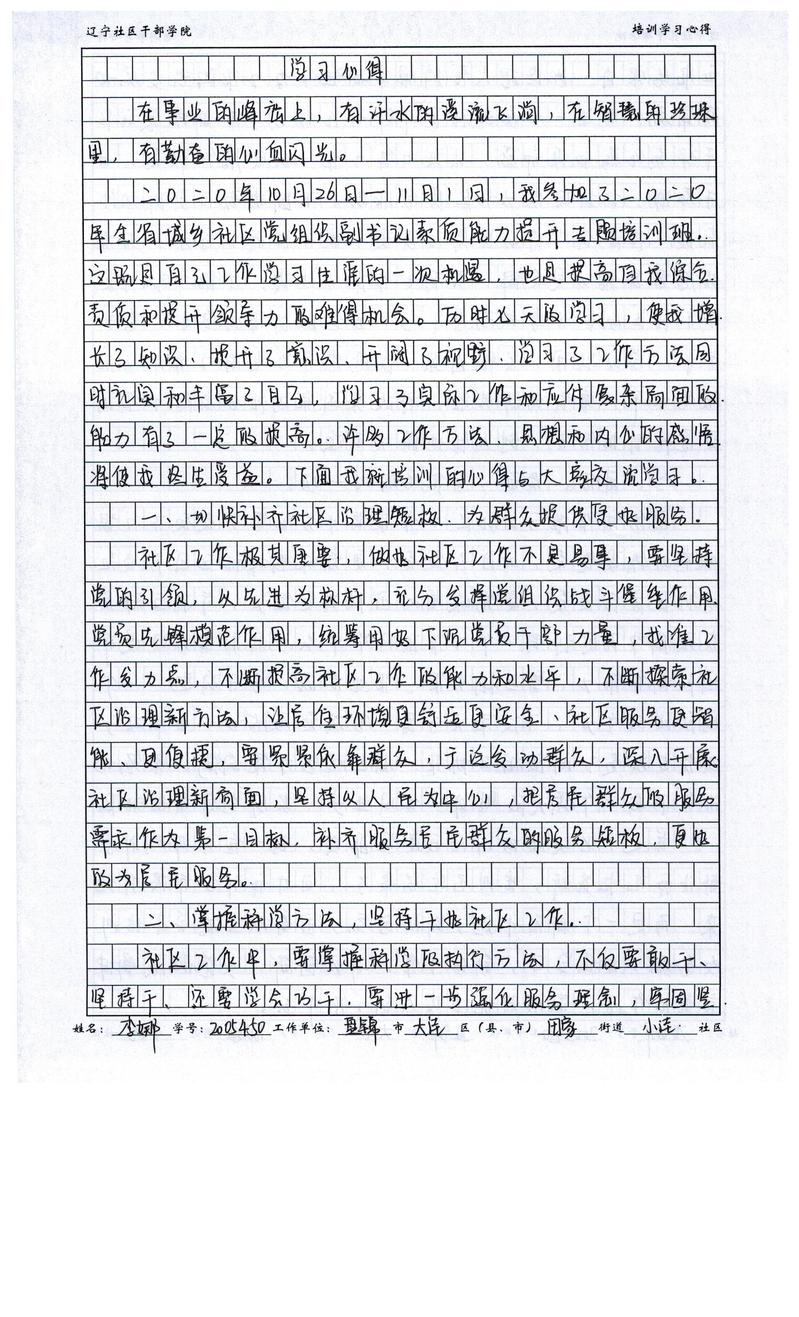 辽宁社区干部学院 培训学习心得
学习心得
在事业的峰峦上，有汗水的溪流飞淌，在智慧的珍珠
里，有勤奋的心血闪光。
二〇二〇年10月26日—11月1日，我参加了二〇二〇
年全省城乡社区党组织副书记素质能力提升专题培训班。
这既是自己工作学习生涯的一次机遇，也是提高自我综合
素质和提升领导力的难得机会。历时七天的学习，使我增
长了知识、提升了意识、开阔了视野、学习了工作方法同
时充实和丰富了自己，学习了实际工作和应付复杂局面的
能力有了一定的提高。许多工作方法、思想和内心的感悟
将使我终生受益。下面我就培训的心得与大家交流学习。
一、加快补齐社区治理短板、为群众提供更好服务。
社区工作极其重要，做好社区工作不是易事，要坚持
党的引领，以先进为标杆，充分发挥党组织战斗堡垒作用
党员先锋模范作用，统筹用好下沉党员干部力量，找准工
作发力点，不断提高社区工作的能力和水平，不断探索社
区治理新方法，让居住环境更舒适更安全、社区服务更智
能、更便捷，要紧紧依靠群众，广泛发动群众，深入开展
社区治理新局面，坚持以人民为中心，把居民群众的服务
需求作为第一目标，补齐服务居民群众的服务短板，更好
的为居民服务。
二、掌握科学方法，坚持干好社区工作。
社区工作中，要掌握科学的执行方法，不仅要敢干、
坚持干、还要学会巧干，要进一步强化服务理念，牢固坚
姓名：李娜 学号：2005450 工作单位：盘锦 市 大洼 区（县、市） 田家 街道 小洼 社区